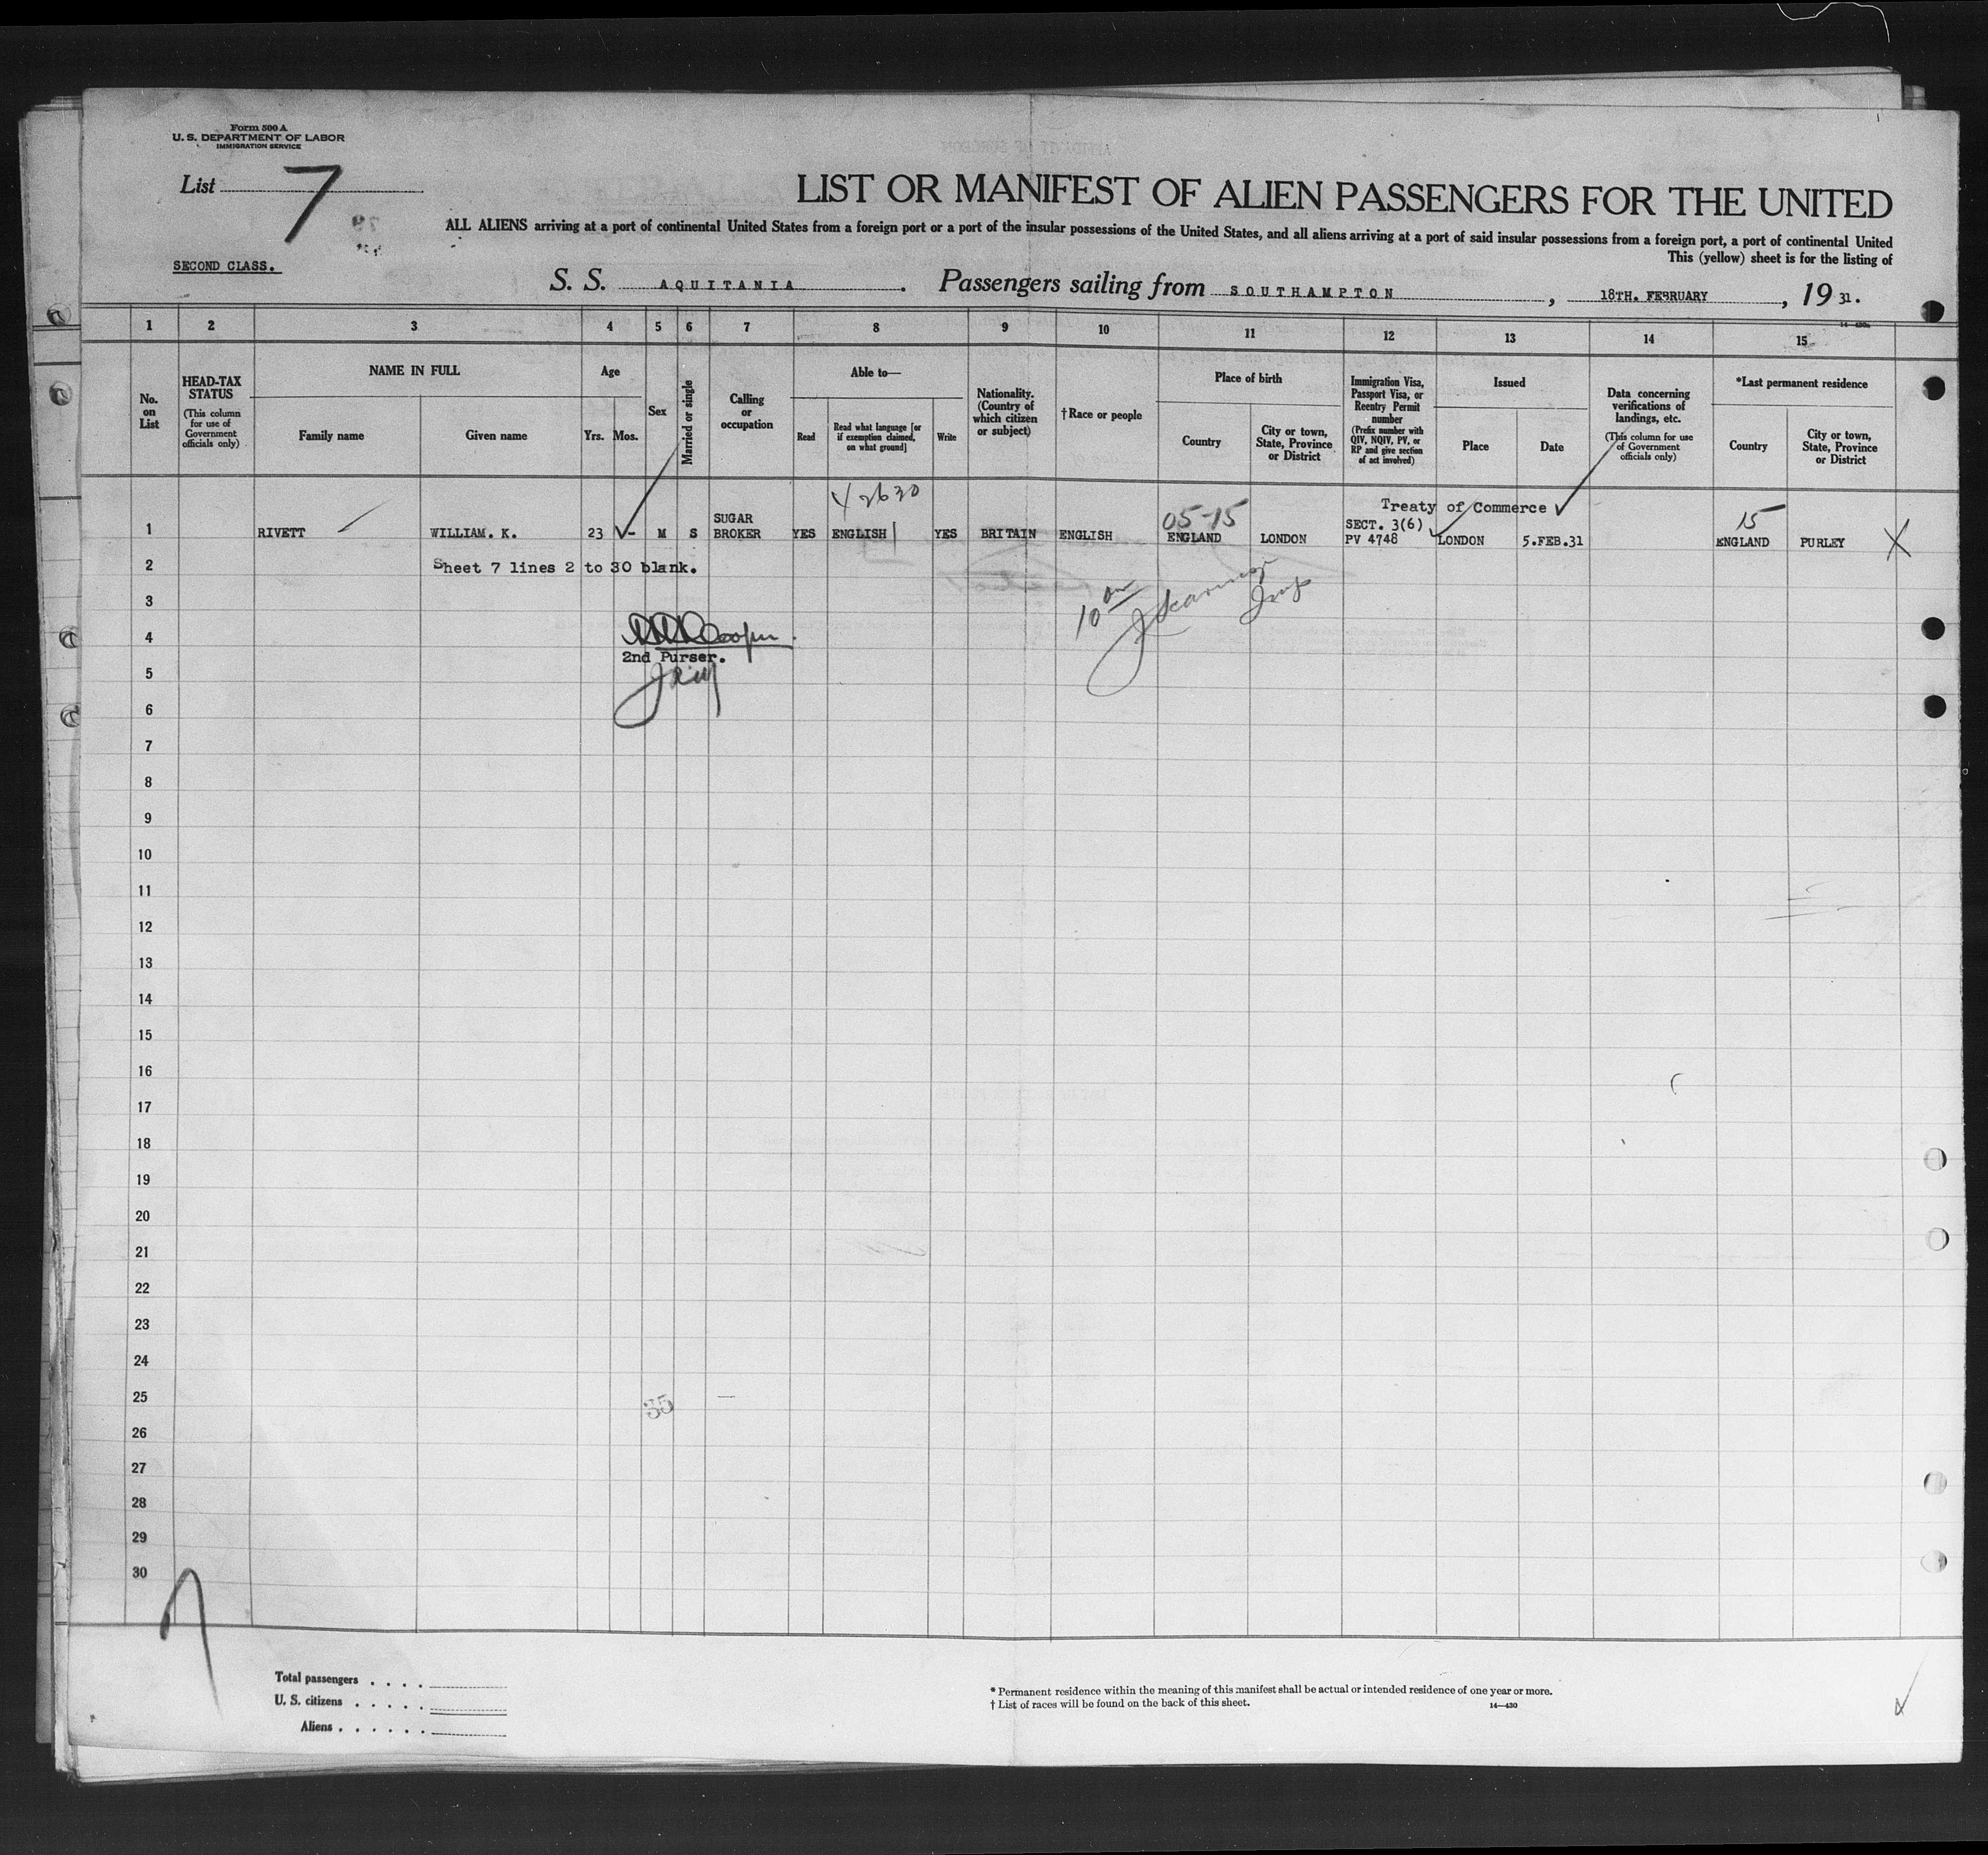 Form 500 A
U. S. DEPARTMENT OF LABOR
IMMIGRATION SERVICE
List 7
LIST OR MANIFEST OF ALIEN PASSENGERS FOR THE UNITED
ALL ALIENS arriving at a port of continental United States from a foreign port or a port of the insular possessions of the United States, and all aliens arriving at a port of said insular possessions from a foreign port, a port of continental United
This (yellow) sheet is for the listing of
SECOND CLASS.
S. S. AQUITANIA. Passengers sailing from SOUTHAMPTON, 18TH. FEBRUARY, 19 31.
1 2 3 4 5 6 7 8 9 10 11 12 13 14 15
No. on List
HEAD-TAX STATUS
(This column for use of Government officials only)
NAME IN FULL
Family name
Given name
Age
Yrs. Mos.
Sex
Married or single
Calling or occupation
Able to—
Read
Read what language [or if exemption claimed, on what ground]
Write
Nationality. (Country of which citizen or subject)
†Race or people
Place of birth
Country
City or town, State, Province or District
Immigration Visa, Passport Visa, or Reentry Permit number
(Prefix number with QIV, NQIV, PV, or RP and give section of act involved)
Issued
Place
Date
Data concerning verifications of landings, etc.
(This column for use of Government officials only)
*Last permanent residence
Country
City or town, State, Province or District
4 2630
05-15
Treaty of Commerce
15
1 RIVETT WILLIAM. K. 23 - M S SUGAR BROKER YES ENGLISH YES BRITAIN ENGLISH ENGLAND LONDON SECT. 3(6) PV 4748 LONDON 5.FEB.31 ENGLAND PURLEY X
2 Sheet 7 lines 2 to 30 blank.
3
10
4
Cooper.
2nd Purser.
5
6
7
8
9
10
11
12
13
14
15
16
17
18
19
20
21
22
23
24
25
35
26
27
28
29
30
7
Total passengers . . . .
U. S. citizens . . . . .
Aliens . . . . . .
* Permanent residence within the meaning of this manifest shall be actual or intended residence of one year or more.
† List of races will be found on the back of this sheet.
14—430